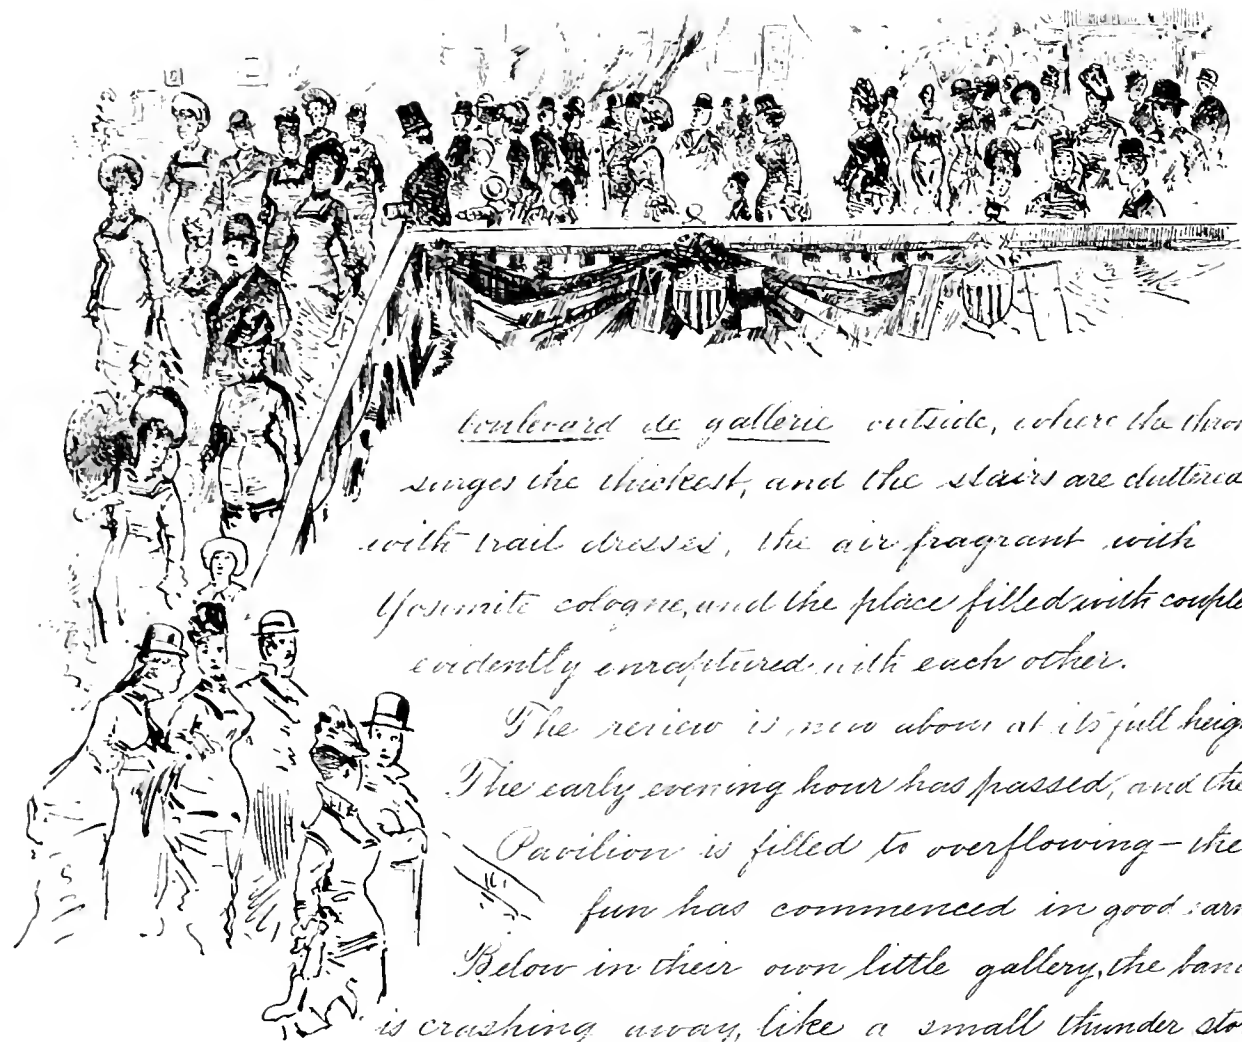 boulevard de gallerie outside, where the thron
surges the thickest, and the stairs are cluttered
with trail dresses, the air fragrant with
Yosimite cologne, and the place filled with couple
evidently enraptured with each other.
The review is now about at its full heig
The early evening hour has passed, and the
Pavilion is filled to overflowing – the
fun has commenced in good earn
Below in their own little gallery, the ban
is crashing away, like a small thunder sto